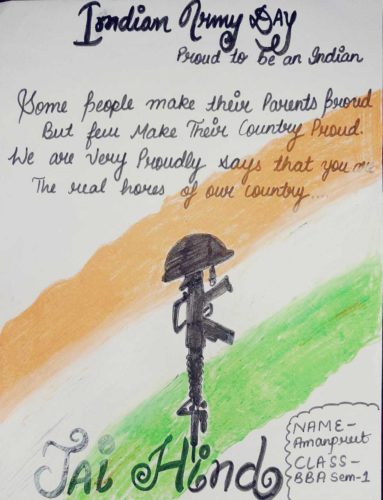 Indian Army Day
Proud to be an Indian
Some People make their Parents Proud
But few Make Their Country Proud.
We are Very Proudly says that you are
The real hores of our country...
Jai Hind
NAME-
Amanpreet
CLASS-
BBA Sem-1